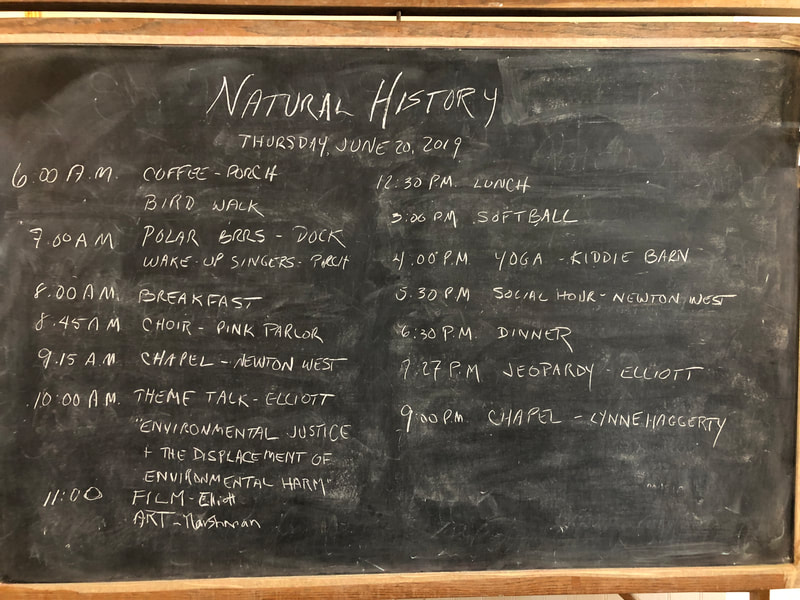 NATURAL HISTORY
THURSDAY, JUNE 20, 2019
6:00 A.M. COFFEE - PORCH
BIRD WALK
7.00 A M POLAR BRRS - DOCK
WAKE-UP SINGERS - PORCH
8.00 A.M. BREAKFAST
8.45 A M CHOIR - PINK PARLOR
9.15 A.M CHAPEL - NEWTON WEST
10:00 A M. THEME TALK - ELLIOTT
"ENVIRONMENTAL JUSTICE
+ THE DISPLACEMENT OF
ENVIRONMENTAL HARM"
11:00 FILM - Elliott
ART - Marshman
12:30 P.M. LUNCH
3:00 PM SOFTBALL
4.00 P.M. YOGA - KIDDIE BARN
5.30 P.M SOCIAL HOUR - NEWTON WEST
6:30 P.M. DINNER
7:27 P.M JEOPARDY - ELLIOTT
9:00 P.M. CHAPEL - LYNNE HAGGERTY